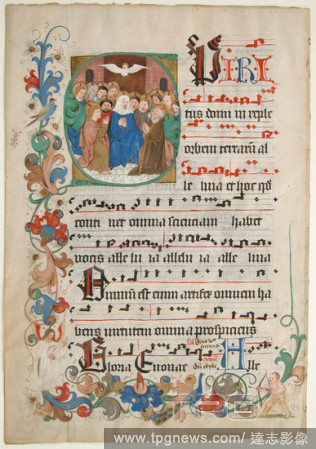 SPIRI
tus domi ni reple
orbem terrarum al
le luia et hoc qd
conti net omnia scienciam habet
vocis alle lu ia allelu ia alle luia
Omnium est enim artifex omnem ha
bens virtutem omnia prospiciens
Gloria Euouae Alle
www.tpgnews.com/ 達志影像